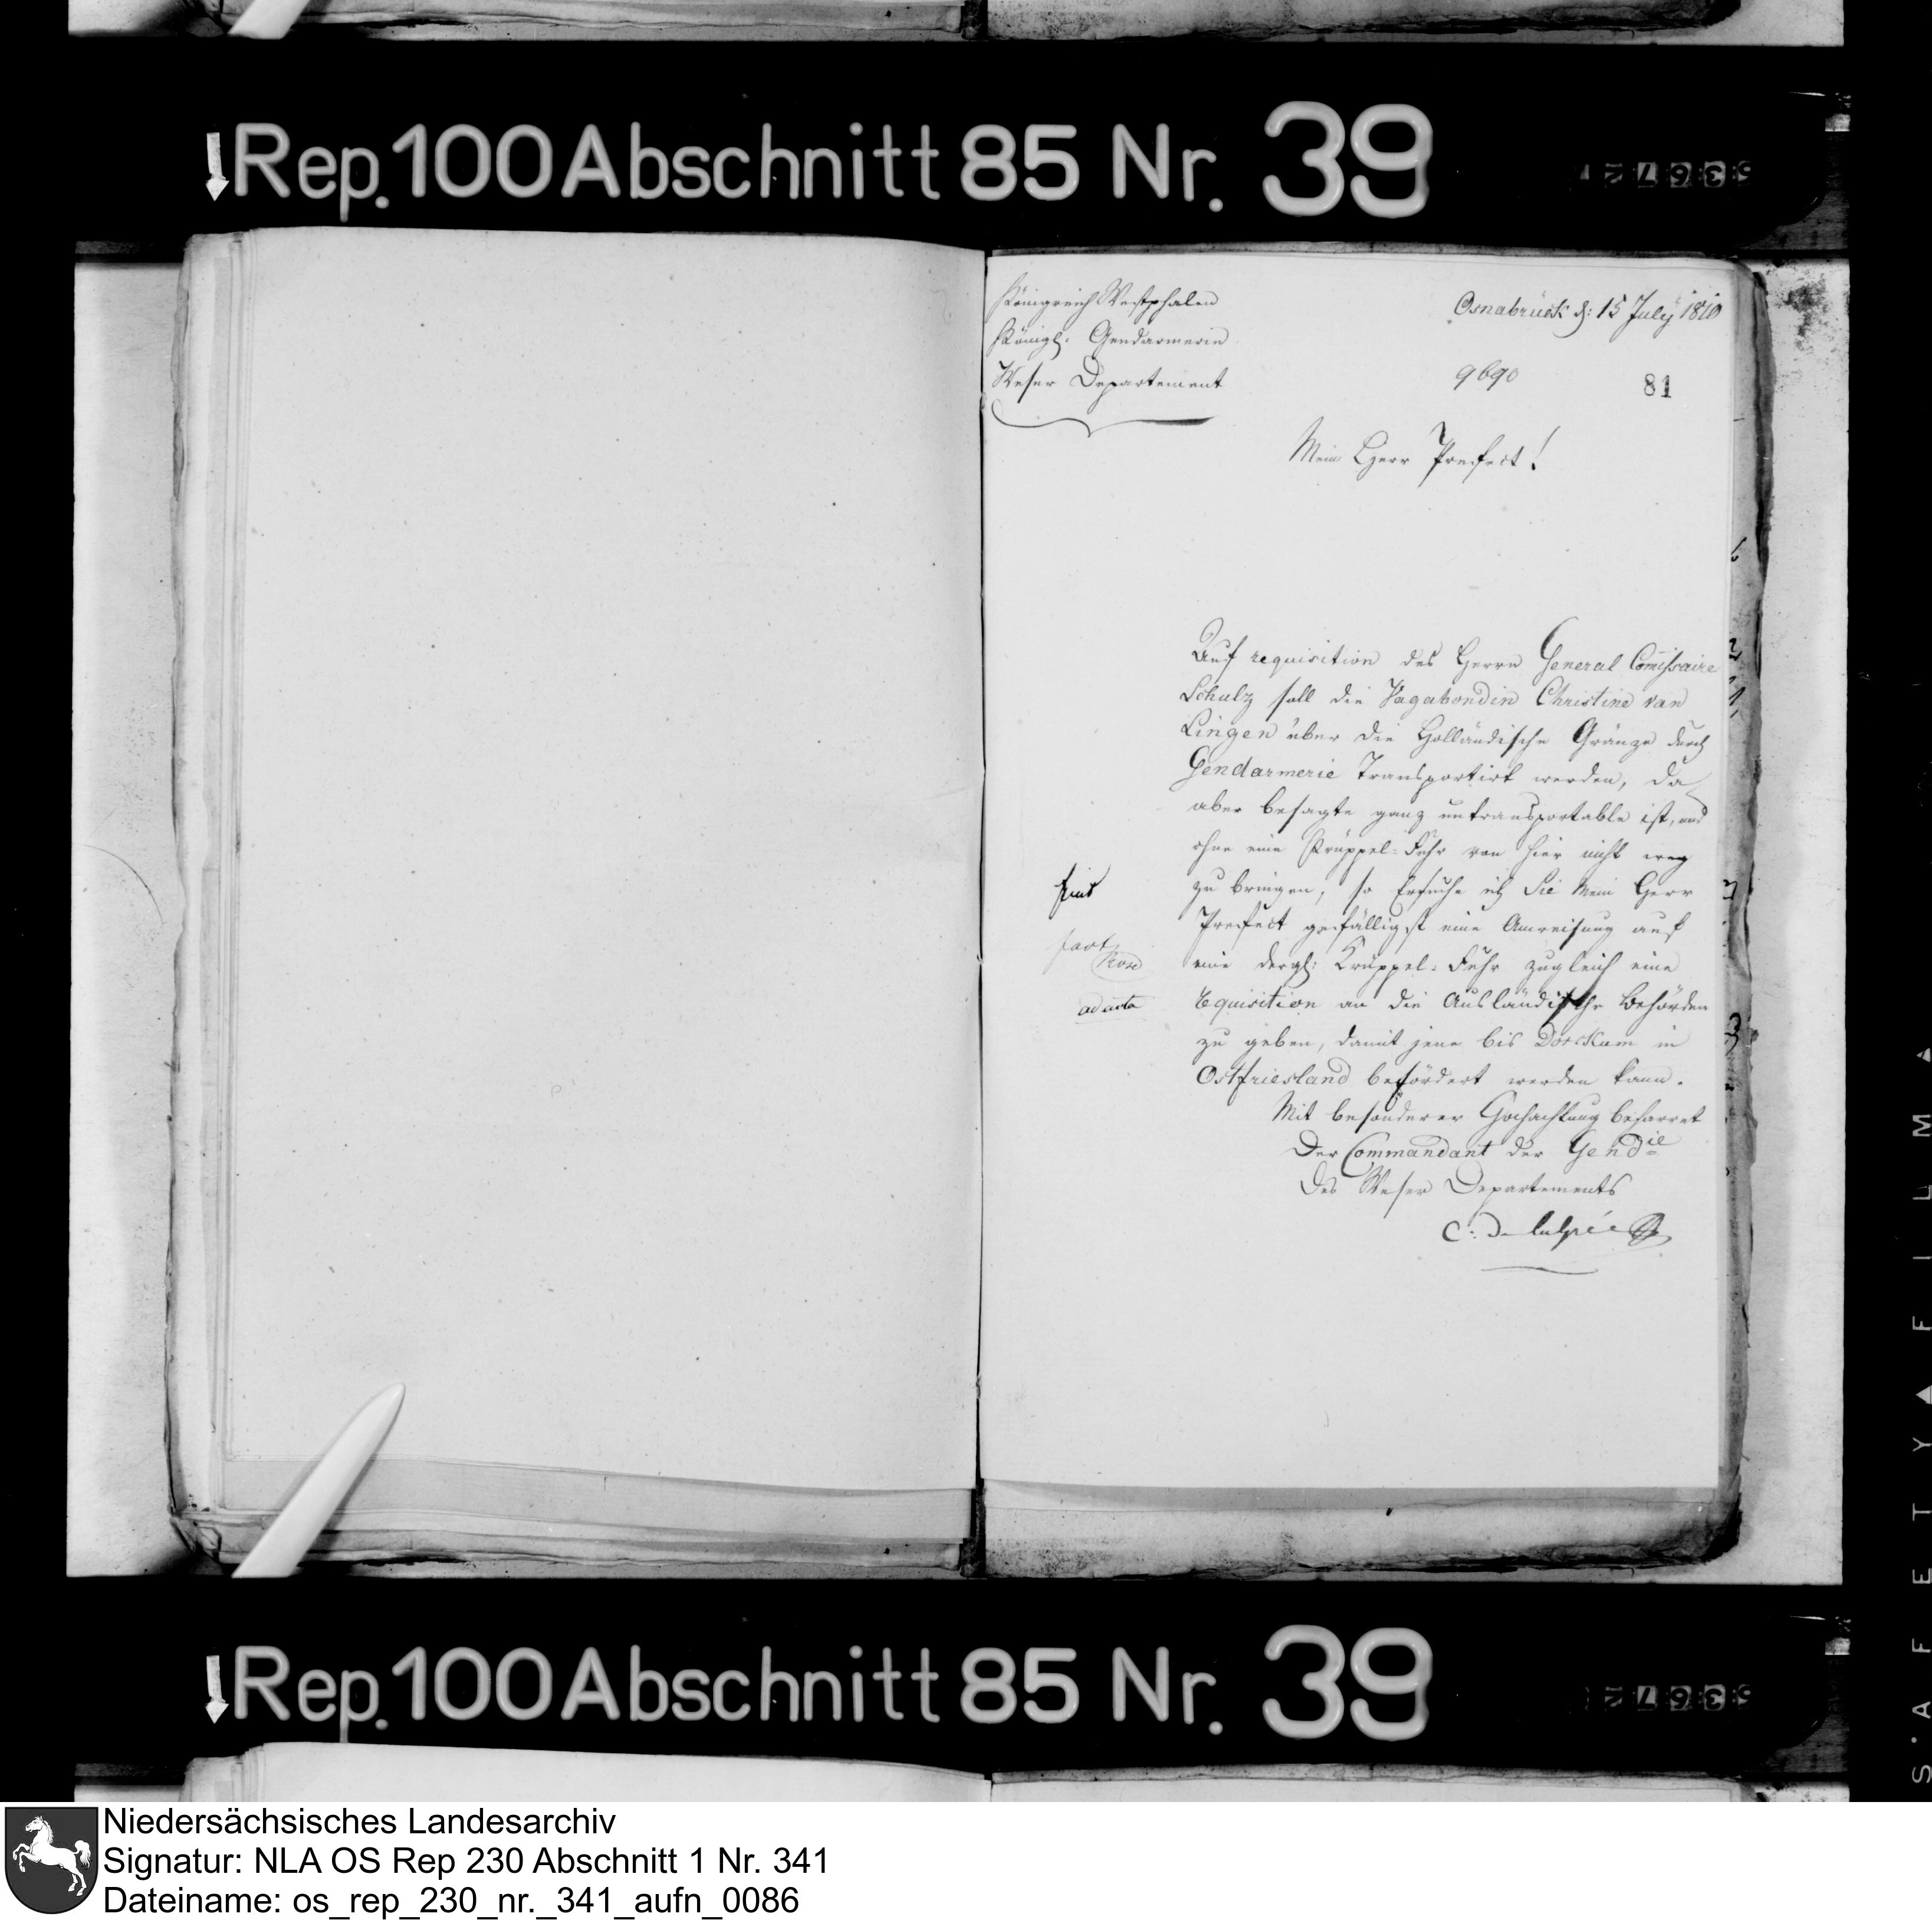 Rep. 100 Abschnitt 85 Nr. 39
Königreich Westphalen
Königl. Gendarmerie
Weser Departement
Osnabrück d: 15 July 1810
9690
81
Mein Herr Prefect!
Auf requisition des Herrn General Comissaire
Schulz soll die Vagabondin Christine van
Lingen über die Holländische Gränze durch
Gendarmerie Transportirt werden, da
aber besagte ganz untransportable ist, und
ohne eine Krüppel-Fuhr von hier nicht weg
zu bringen, so Ersuche ich Sie Mein Herr
Prefect gefälligst eine Anweisung auf
eine dergl: Krüppel-Fuhr zugleich eine
Requisition an die Ausländische Behörden
zu geben, damit jene bis in
Ostfriesland befördert werden kann.
Mit besonderer Hochachtung beharret
Der Commandant der Gendie
des Weser Departements
fact
ad acta
Rep. 100 Abschnitt 85 Nr. 39
SAFETY FILM
Niedersächsisches Landesarchiv
Signatur: NLA OS Rep 230 Abschnitt 1 Nr. 341
Dateiname: os_rep_230_nr._341_aufn_0086